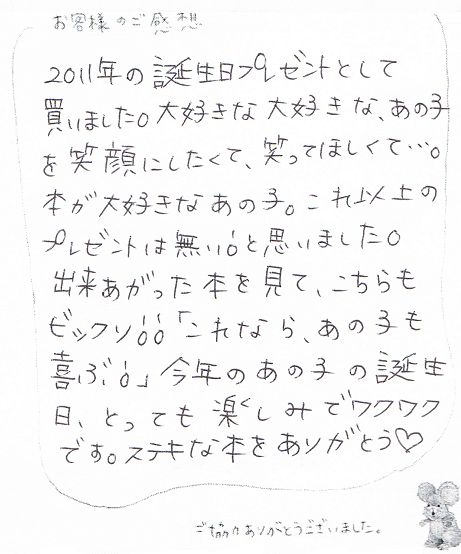 お客様のご感想
2011年の誕生日プレゼントとして
買いました。大好きな大好きな、あの子
を笑顔にしたくて、笑ってほしくて…。
本が大好きなあの子。これ以上の
プレゼントは無い!と思いました。
出来あがった本を見て、こちらも
ビックリ!!「これなら、あの子も
喜ぶ!」今年のあの子の誕生
日、とっても楽しみでワクワク
です。ステキな本をありがとう♡
ご協力ありがとうございました。